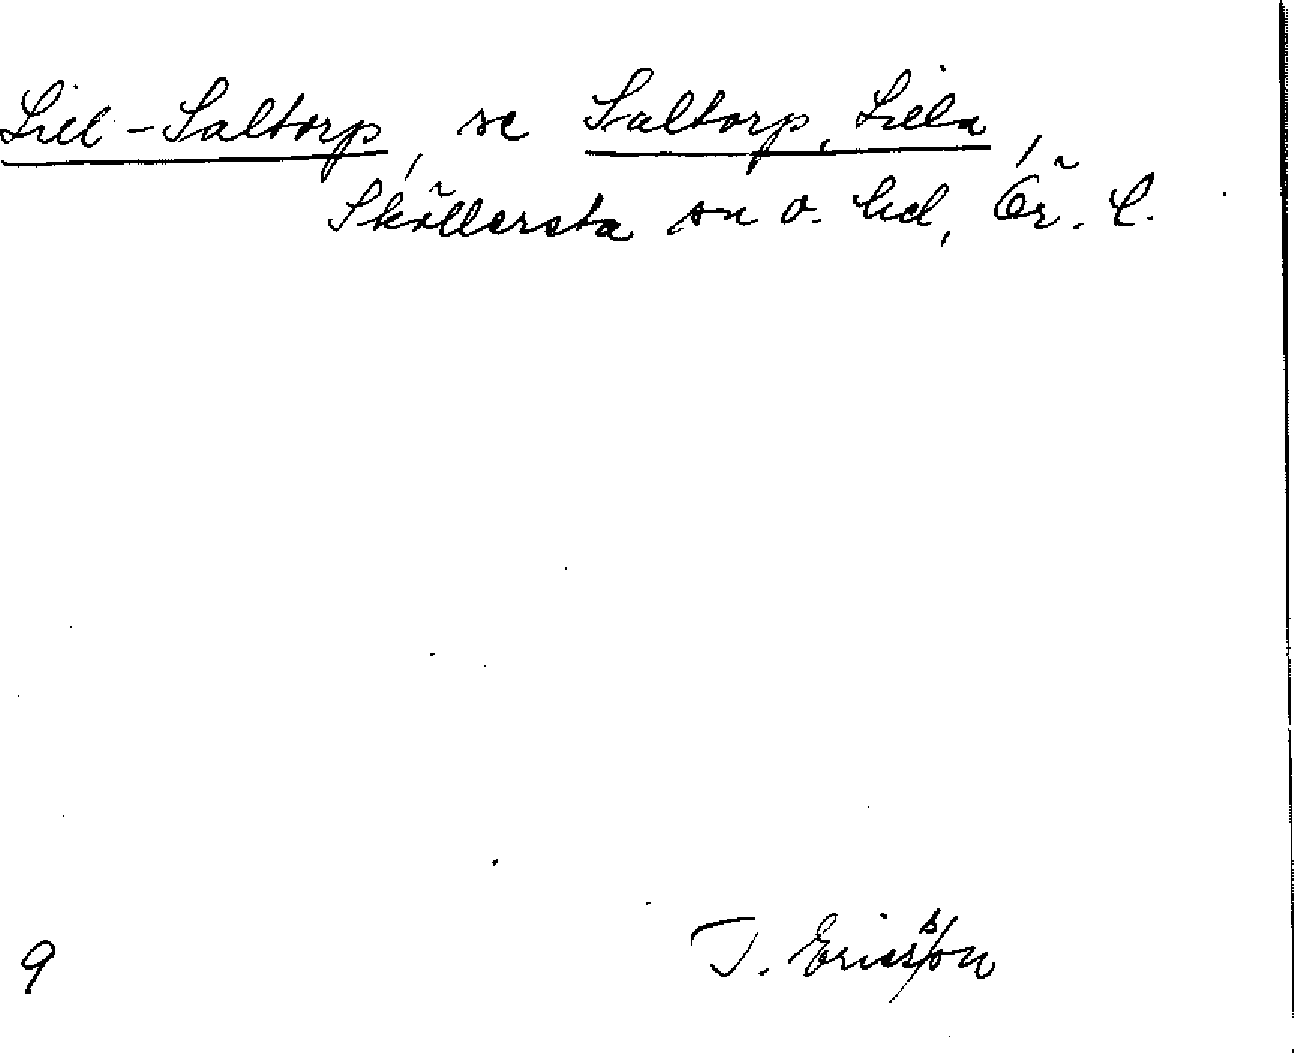 Lill-Saltorp, se Saltorp, Lilla,
Sköllersta sn o. hd, Ör. l.
9 T. Ericsson